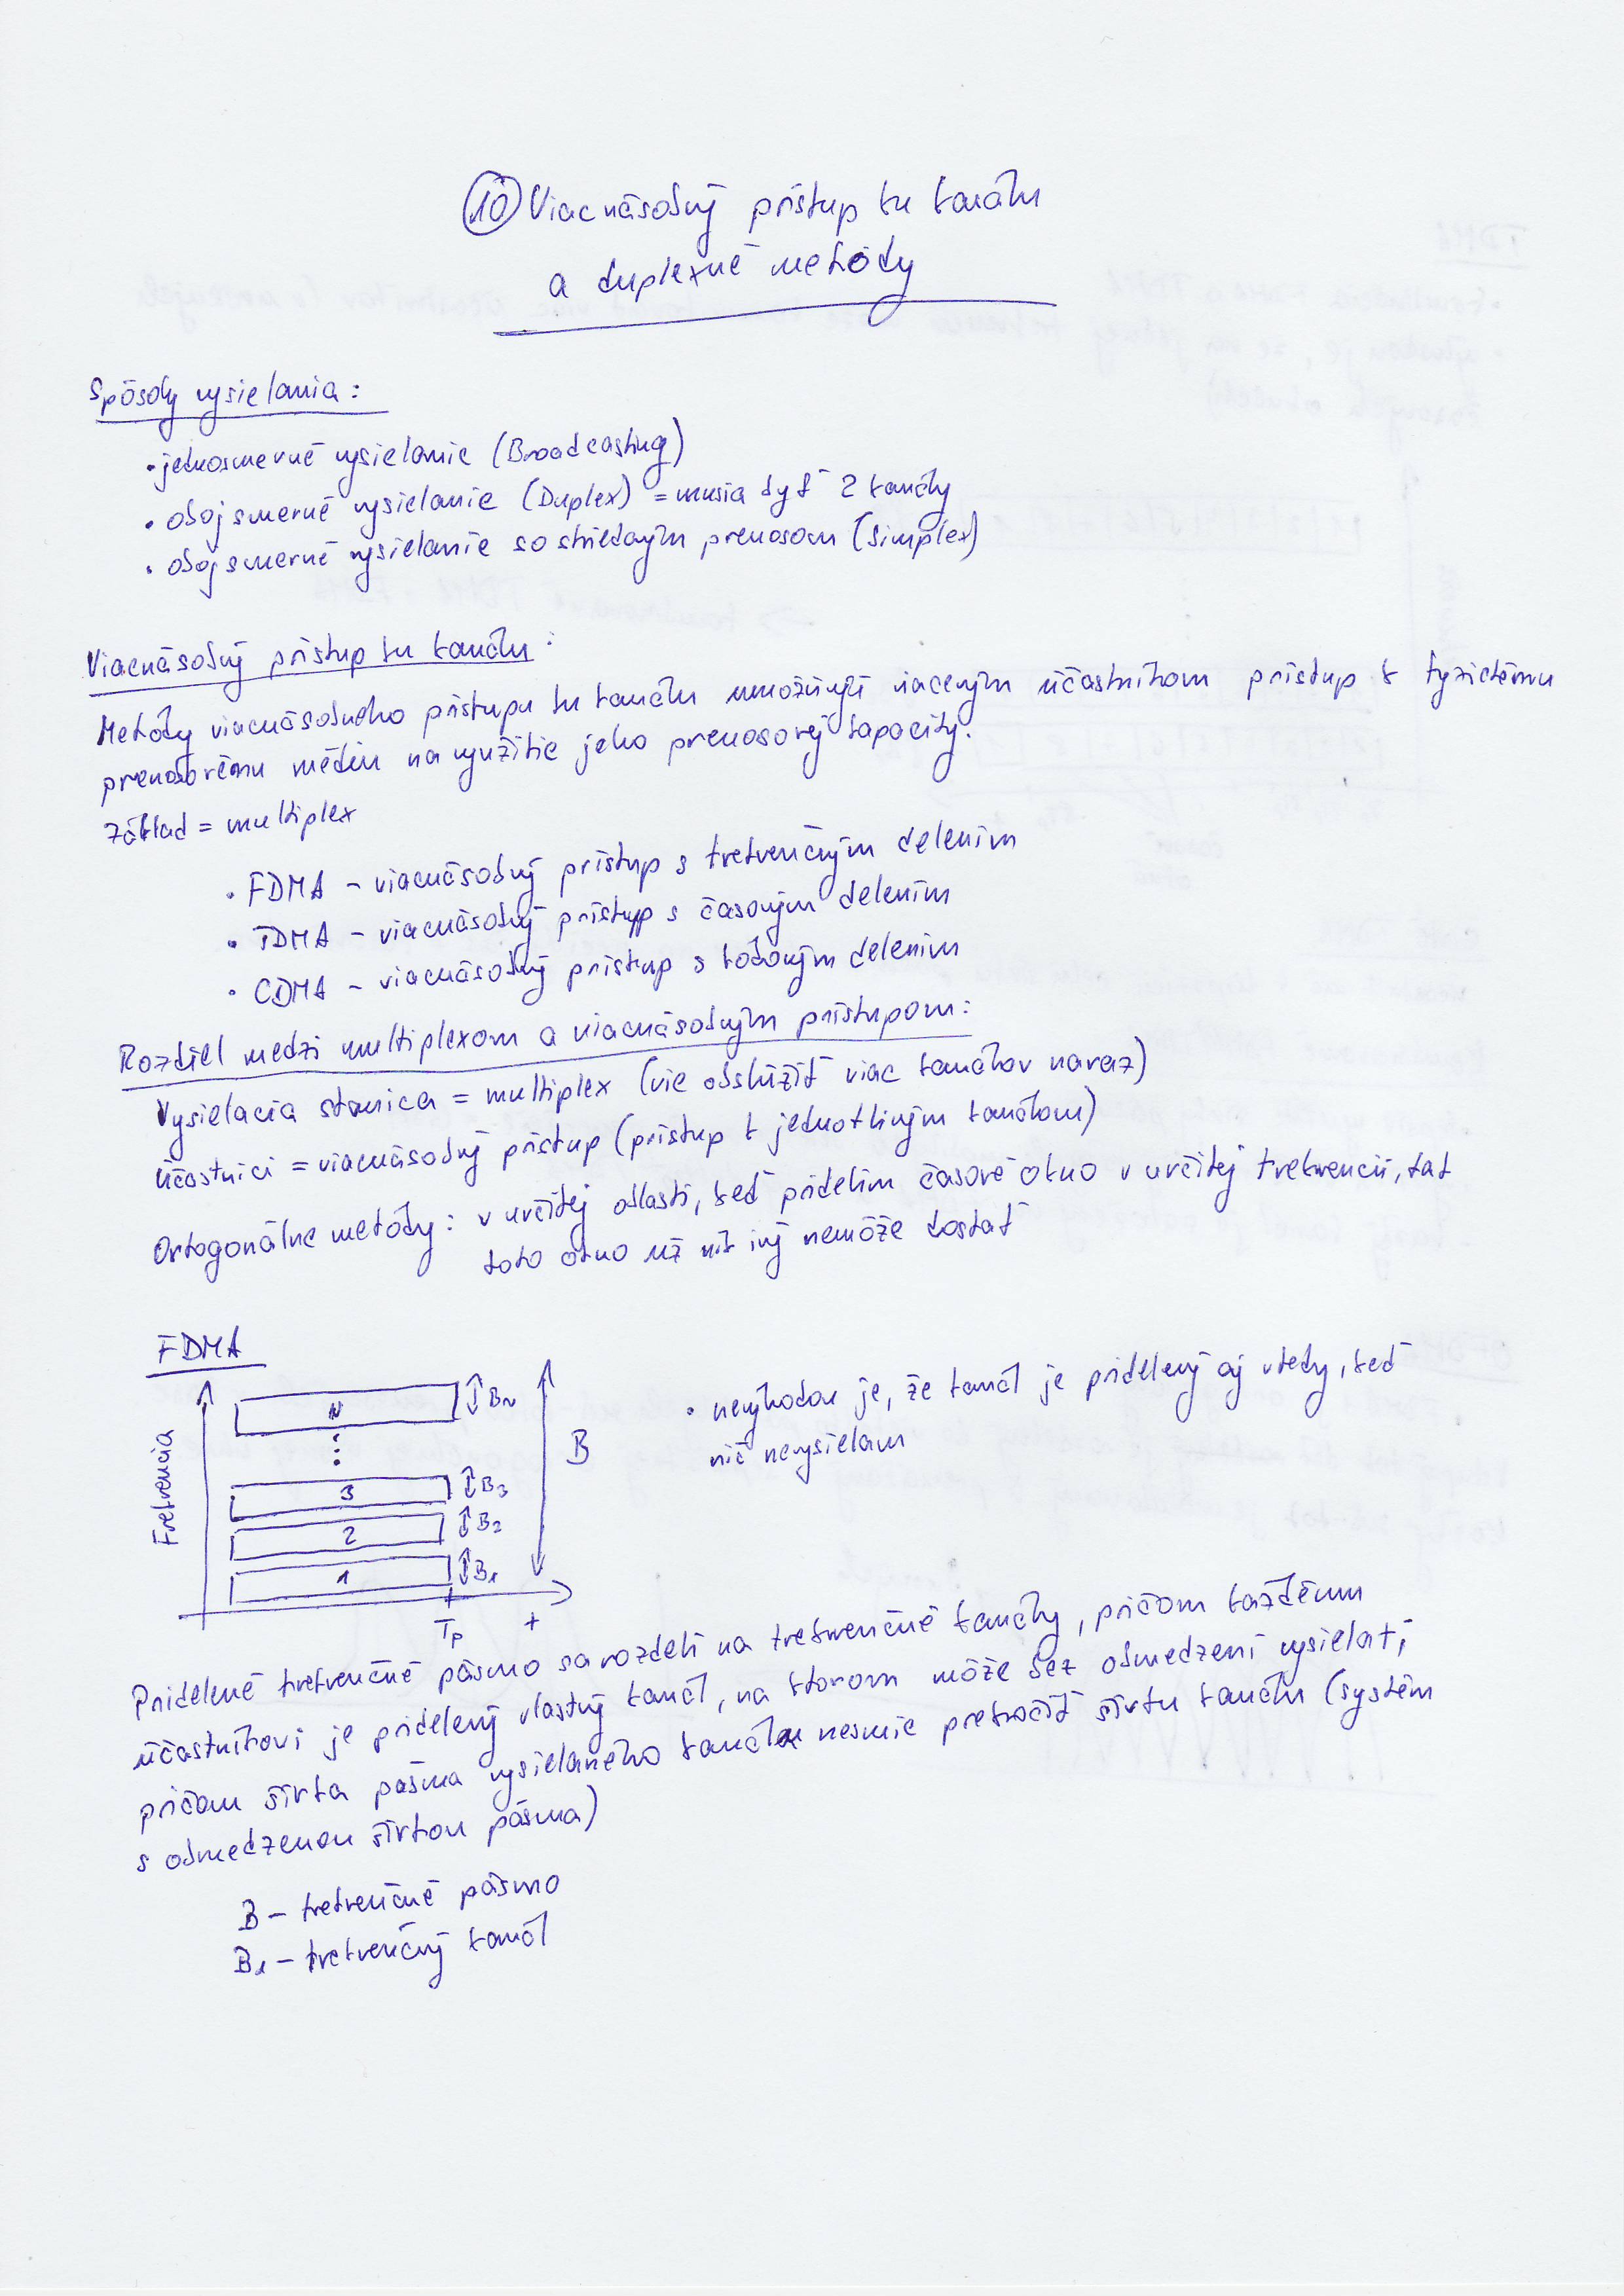 10 Viacnásobný prístup ku kanálu
a duplexné metódy
Spôsoby vysielania:
• jednosmerné vysielanie (Broadcasting)
• obojsmerné vysielanie (Duplex) = musia byť 2 kanály
• obojsmerné vysielanie so striedavým prenosom (simplex)
Viacnásobný prístup ku kanálu:
Metódy viacnásobného prístupu ku kanálu umožňujú viacerým účastníkom prístup k fyzickému
prenosovému médiu na využitie jeho prenosovej kapacity.
Základ = multiplex
• FDMA - viacnásobný prístup s frekvenčným delením
• TDMA - viacnásobný prístup s časovým delením
• CDMA - viacnásobný prístup s kódovým delením
Rozdiel medzi multiplexom a viacnásobným prístupom:
Vysielacia stanica = multiplex (vie obslúžiť viac kanálov naraz)
Účastníci = viacnásobný prístup (prístup k jednotlivým kanálom)
Ortogonálne metódy: v určitej oblasti, keď pridelím časové okno v určitej frekvencii, tak
toto okno už nik iný nemôže dostať
FDMA
Frekvencia
N
BN
3
B3
2
B2
1
B1
B
Tp
t
• nevýhodou je, že kanál je pridelený aj vtedy, keď
nič nevysielam
Pridelené frekvenčné pásmo sa rozdelí na frekvenčné kanály, pričom každému
účastníkovi je pridelený vlastný kanál, na ktorom môže bez obmedzení vysielať,
pričom šírka pásma vysielaného kanálu nesmie prekročiť šírku kanálu (systém
s obmedzenou šírkou pásma)
B - frekvenčné pásmo
B1 - frekvenčný kanál